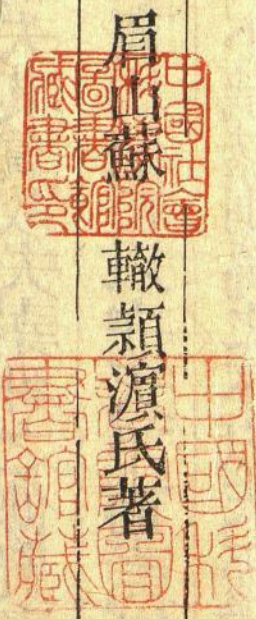 眉山蘇 轍頴濵氏著
中國社會
科學院
圖書館
藏書印
中國科
學院圖
書館藏